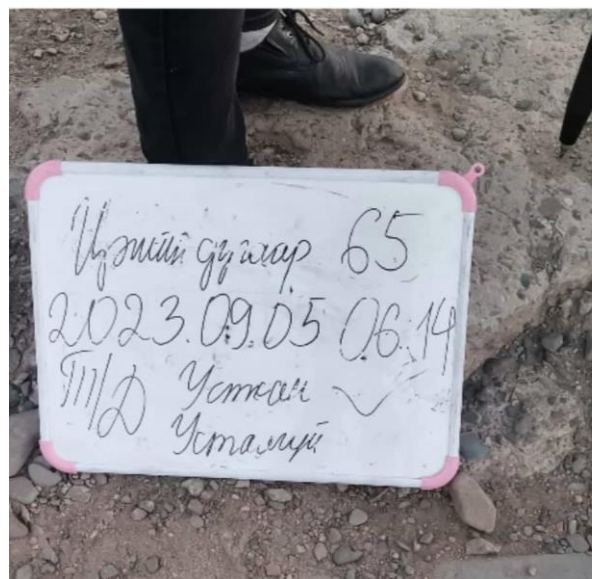 Цэгийн дугаар 65
2023.09.05 06:14
Т/Д Устсан ✓
Устаагүй